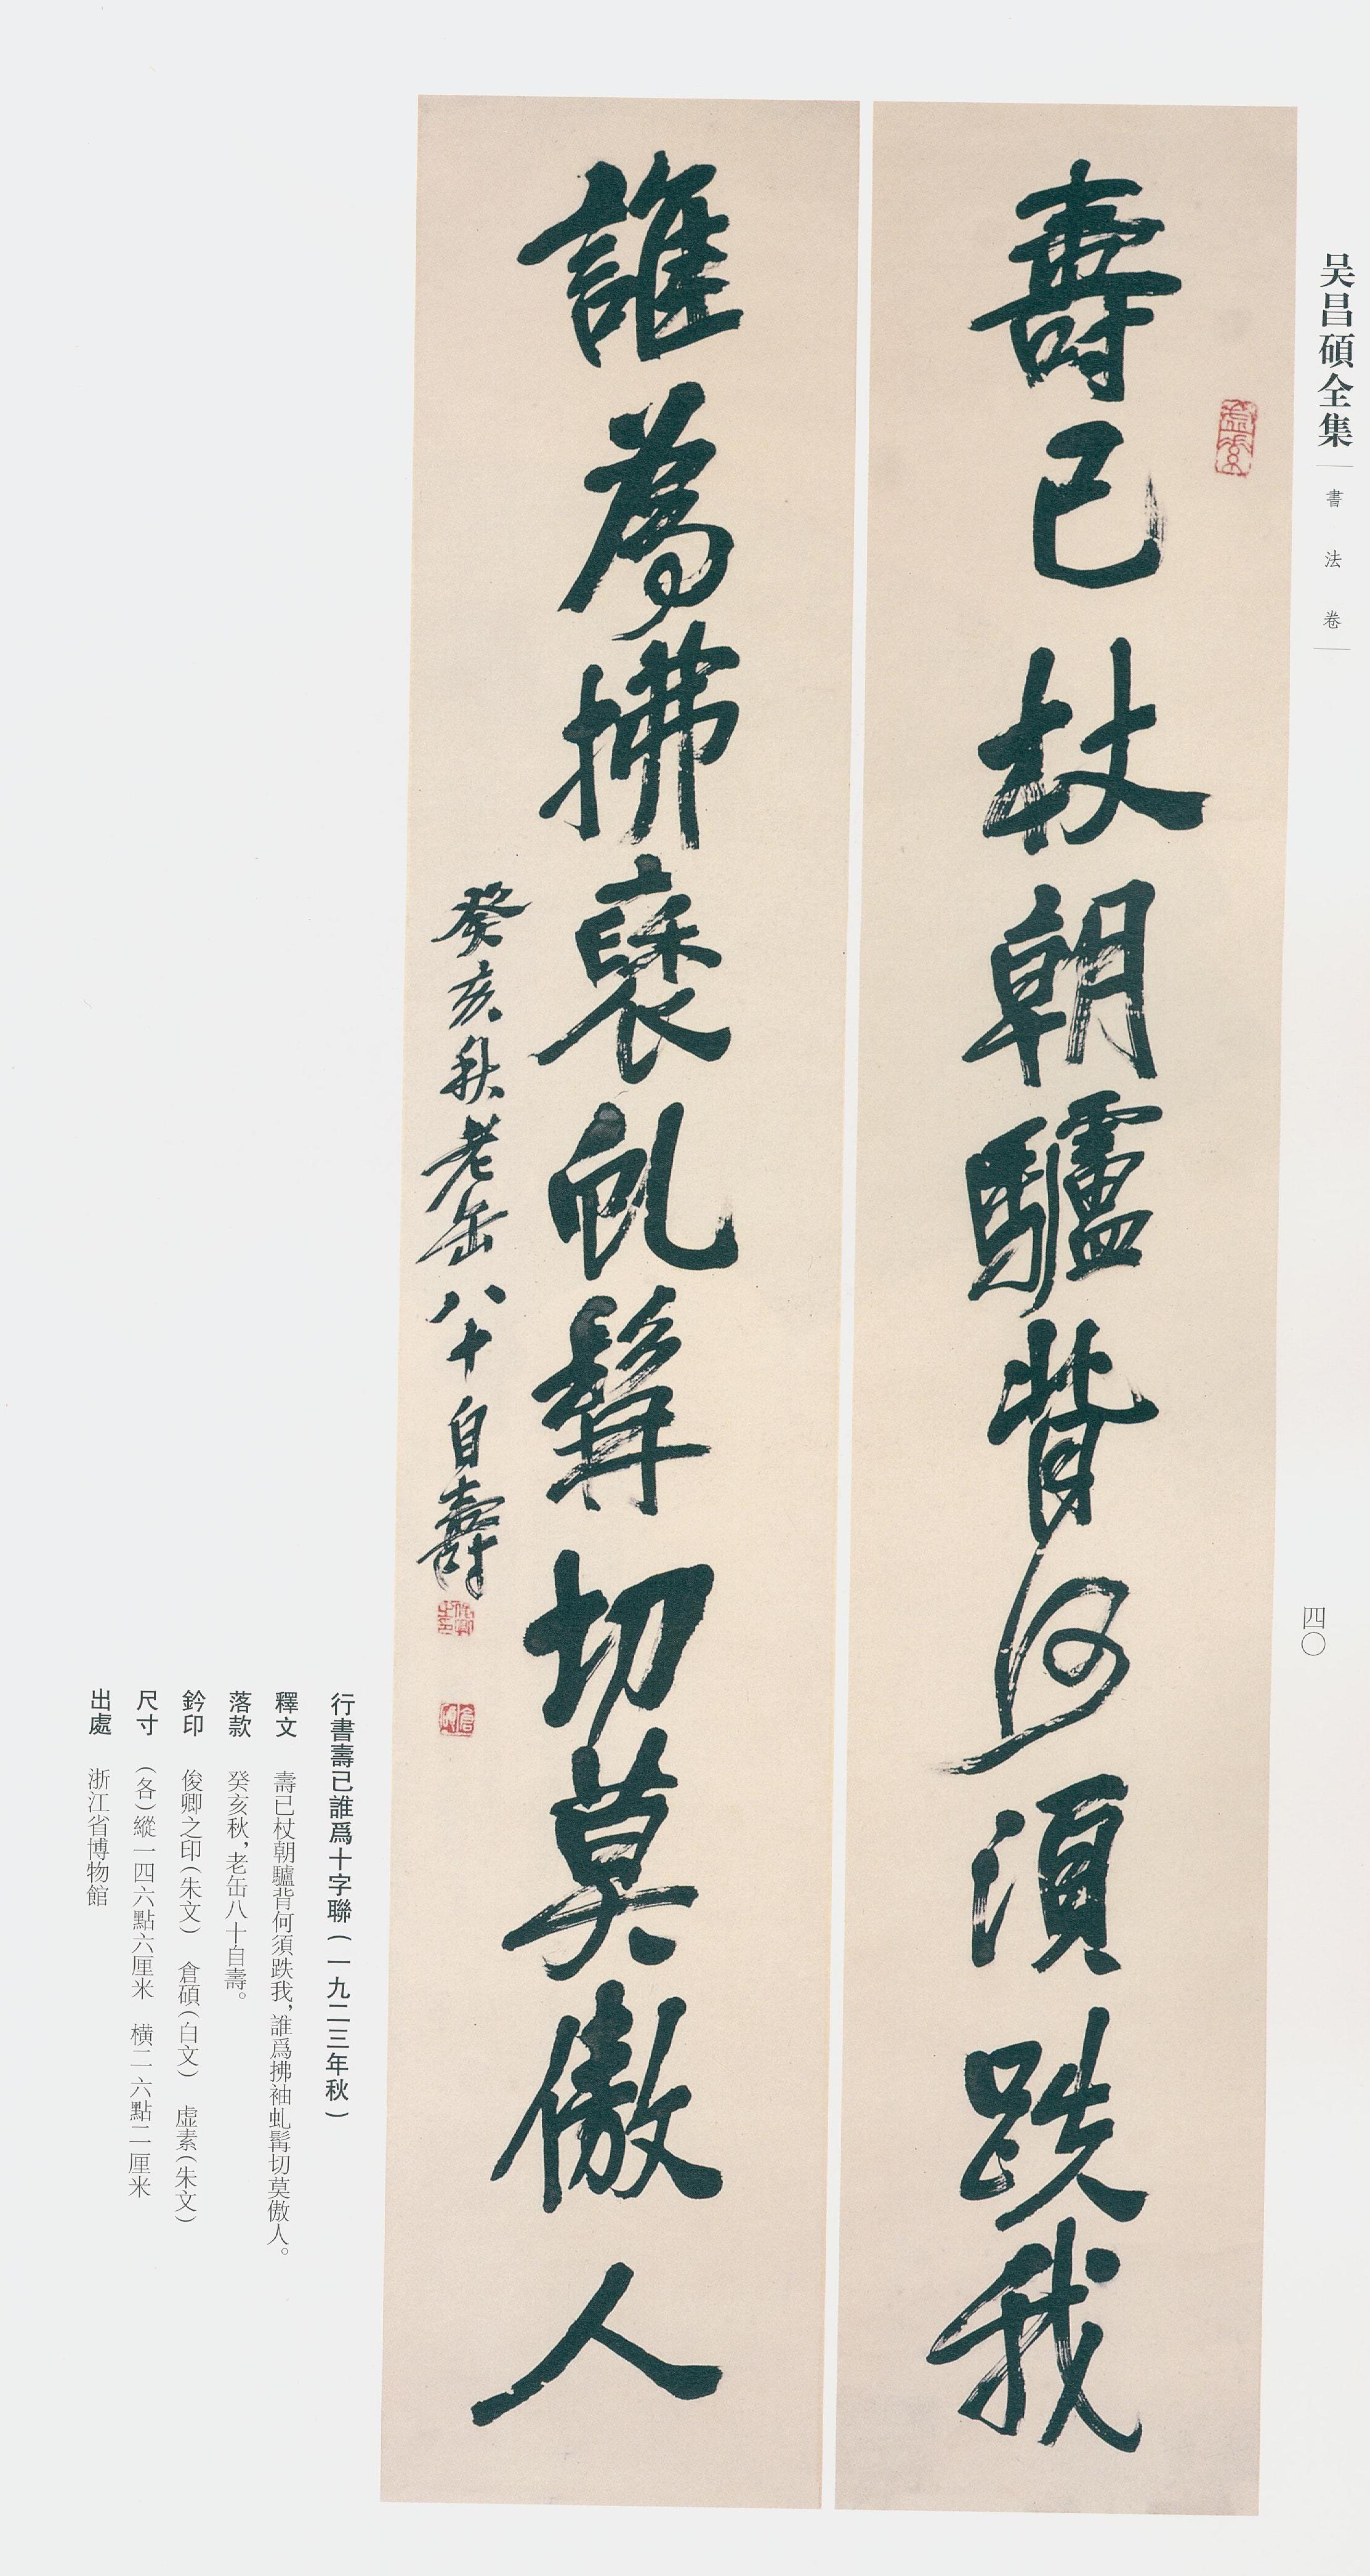 吴昌碩全集
書法卷
四〇
壽已杖朝驢背何須跌我
誰為拂褎虬髯切莫傲人
癸亥秋老缶八十自壽
行書壽已誰爲十字聯（一九二三年秋）
釋文 壽已杖朝驢背何須跌我，誰爲拂袖虬髯切莫傲人。
落款 癸亥秋，老缶八十自壽。
鈐印 俊卿之印（朱文） 倉碩（白文） 虛素（朱文）
尺寸 （各）縱一四六點六厘米 橫二六點二厘米
出處 浙江省博物館